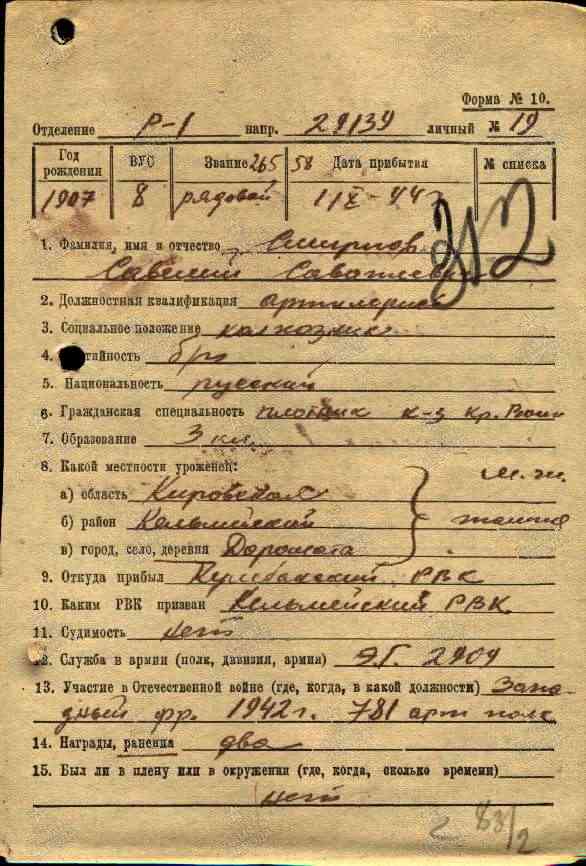 Форма № 10.
Отделение Р-1 напр. 29139 личный № 19
Год рождения ВУС Звание 265 58 Дата прибытия № списка
1907 8 рядовой 1 IX-44 г
312
1. Фамилия, имя и отчество Смирнов
Савелий Саватиевич
2. Должностная квалификация артилерист
3. Социальное положение колхозник
4. тийность б/п
5. Национальность русский
6. Гражданская специальность плотник к-з Кр. Воин
7. Образование 3 кл.
8. Какой местности уроженец:
а) область Кировская м. ж.
б) район Кельмейский
в) город, село, деревня Дорожата
9. Откуда прибыл РВК
10. Каким РВК призван Кельмейский РВК
11. Судимость нет
12. Служба в армии (полк, дивизия, армия) Э.Г. 2909
13. Участие в Отечественной войне (где, когда, в какой должности) Запа-
дный фр. 1942 г. 781 арт полк
14. Награды, ранения два
15. Был ли в плену или в окружении (где, когда, сколько времени)
нет
83/2